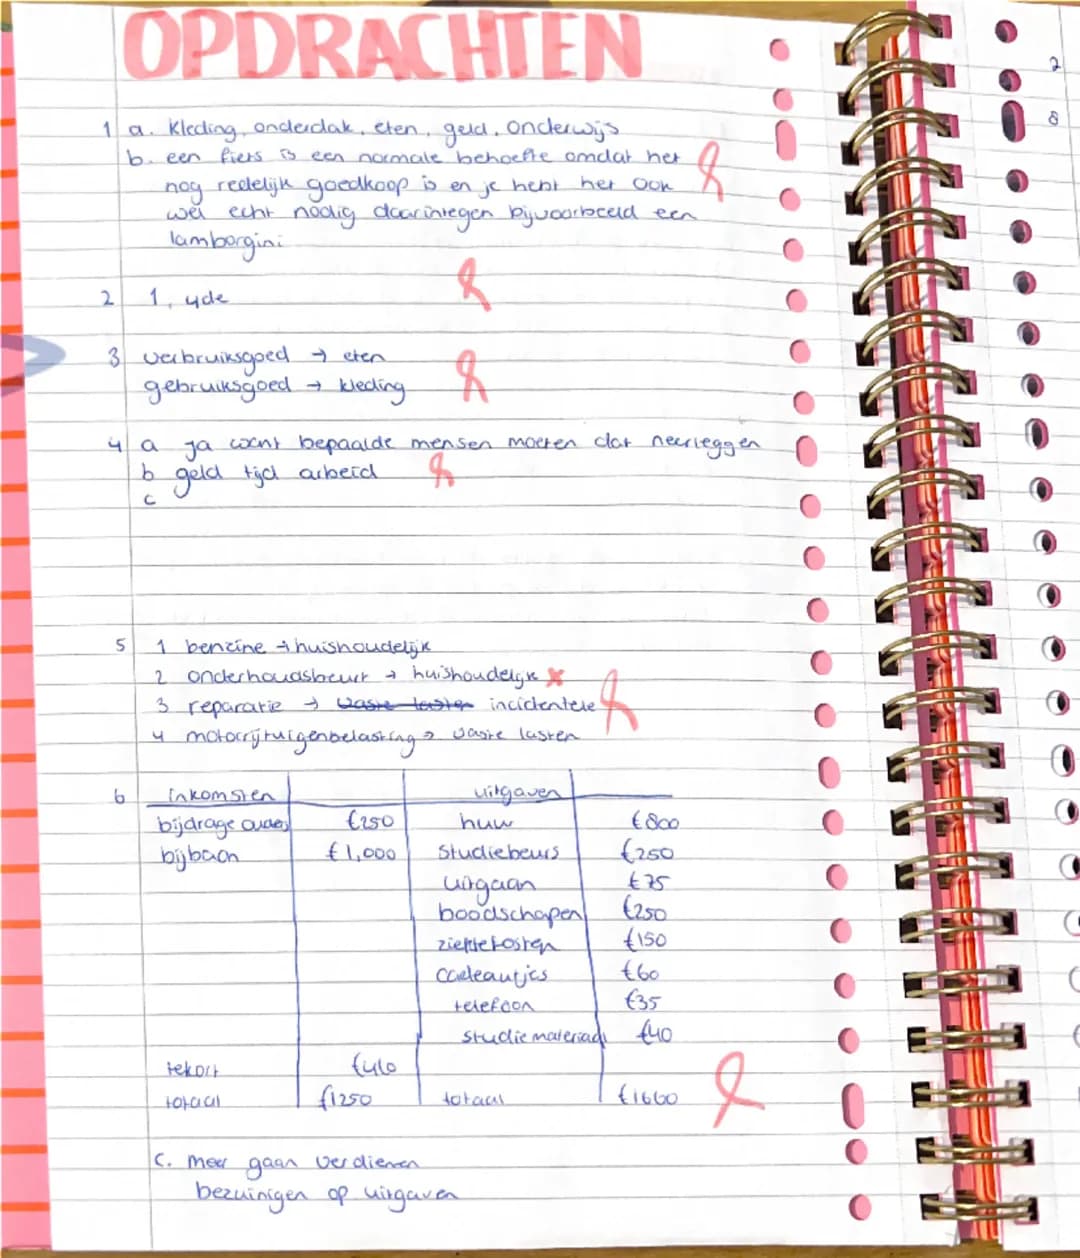 OPDRACHTEN
1 a. Kleding, onderdak, eten, geld, Onderwijs
b. een fiets is een normale behoefte omdat het
nog redelijk goedkoop is en je hebt het ook
wel echt nodig daarintegen bijvoorbeeld een
lamborgini
2 1, 4de
3 verbruiksgoed → eten
gebruiksgoed → kleding
4 a ja want bepaalde mensen moeten dat neerleggen
b geld tijd arbeid
c
5 1 benzine → huishoudelijk
2 onderhoudsbeurt → huishoudelijk x
3 reparatie → vaste lasten incidentele
4 motorrijtuigenbelasting → vaste lasten
6 inkomsten uitgaven
bijdrage ouders €250 huur €800
bijbaan €1,000 Studiebeurs €250
uitgaan €75
boodschapen €250
ziektekosten €150
cadeautjes €60
telefoon €35
studiemateriaal €40
tekort €410
totaal €1250 totaal €1660
C. meer gaan verdienen
bezuinigen op uitgaven
2
8